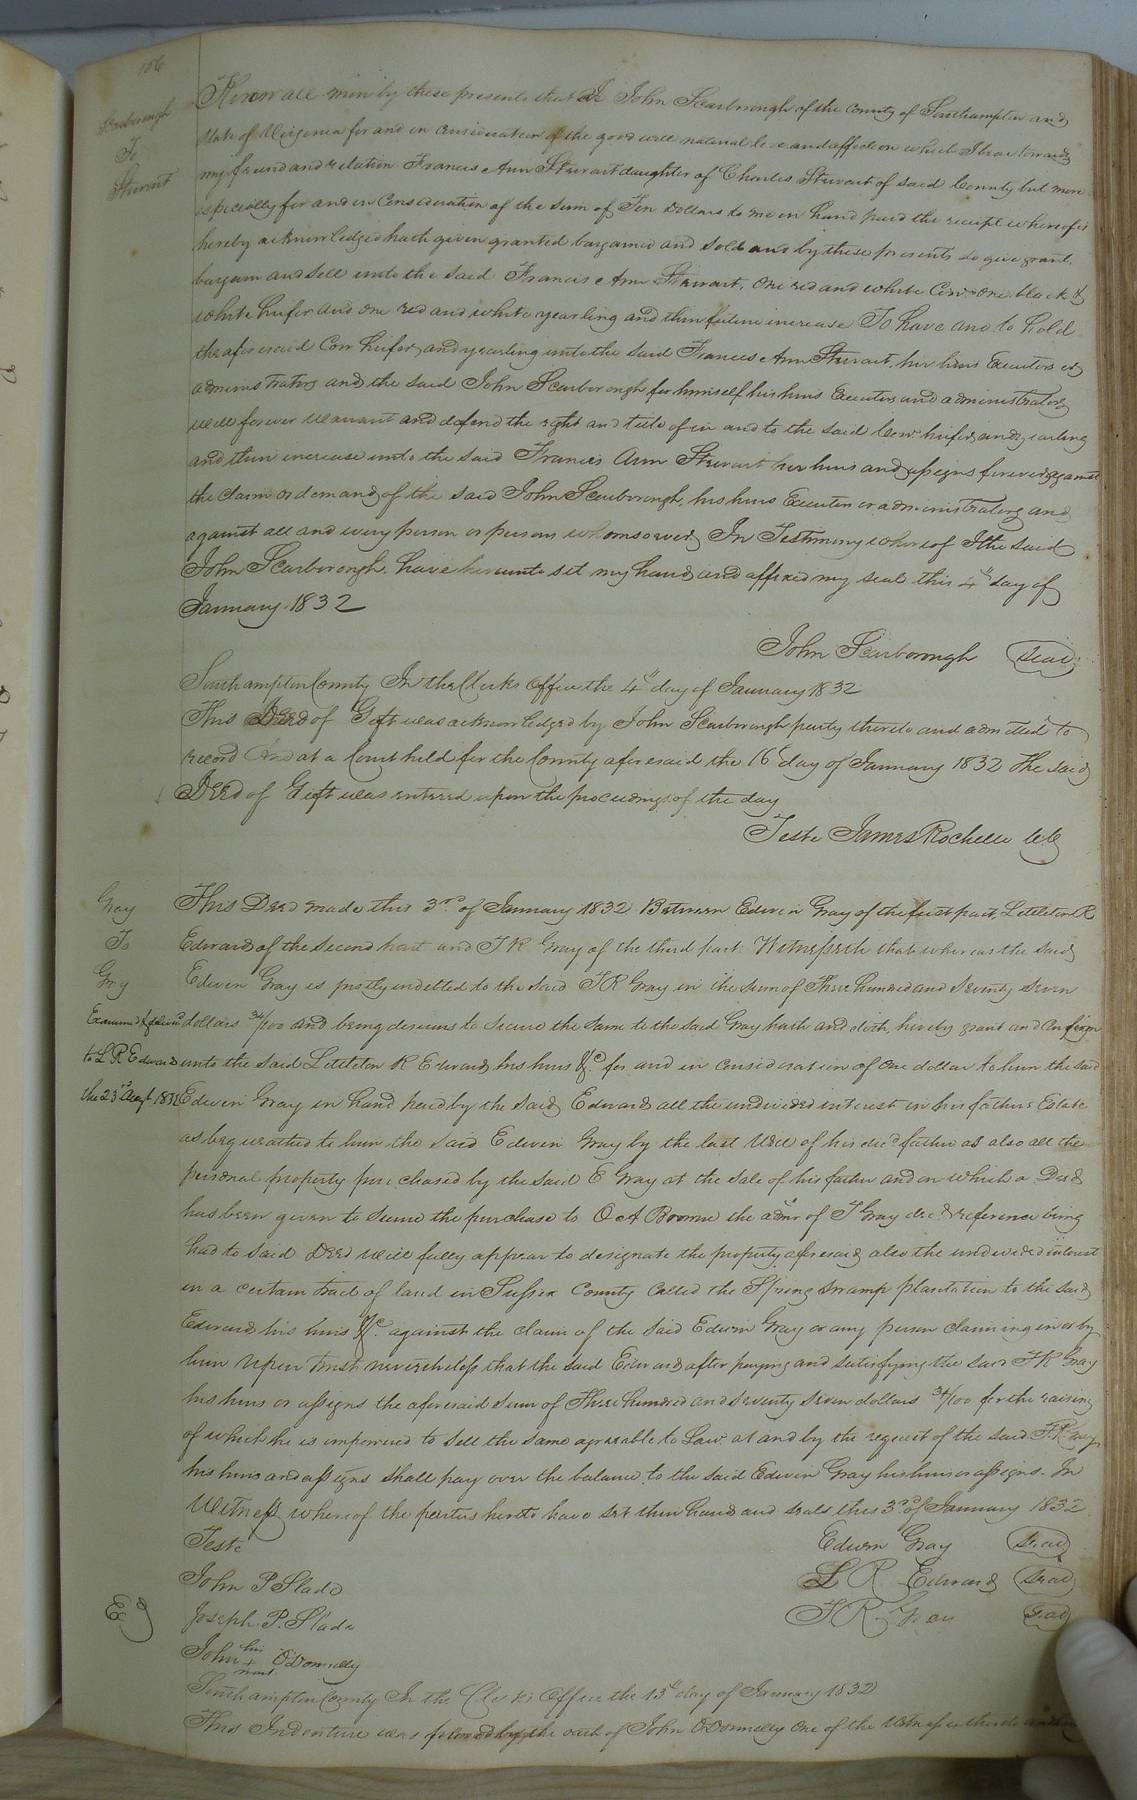 186
Scarborough
To
Stewart
Know all men by these presents that I John Scarborough of the County of Southampton and
State of Virginia for and in consideration of the good will natural love and affection which I bear towards
my friend and relation Frances Ann Stewart daughter of Charles Stewart of said County but more
especially for and in Consideration of the sum of Ten Dollars to me in hand paid the receipt whereof is
hereby acknowledged hath given granted bargained and sold and by these presents do give grant
bargain and sell unto the said Francis Ann Stewart, One red and white Cow one black &
white heifer and one red and white yearling and their future increase To have and to hold
the aforesaid Cow heifer and yearling unto the said Frances Ann Stewart, her heirs Executors or
administrators and the said John Scarborough for himself his heirs Executors and administrators
will forever warrant and defend the right and title of in and to the said Cow heifer and yearling
and their increase unto the said Frances Ann Stewart her heirs and assigns forever against
the claim or demand of the said John Scarborough, his heirs Executors or administrators and
against all and every person or persons whomsoever In Testimony whereof I the said
John Scarborough have hereunto set my hand and affixed my seal this 4th day of
January 1832
John Scarborough Seal
Southampton County In the Clerks Office the 4th day of January 1832
This Deed of Gift was acknowledged by John Scarborough party thereto and admitted to
record And at a Court held for the County aforesaid the 16th day of January 1832 The said
Deed of Gift was entered upon the proceedings of the day
Teste James Rochelle CC
Gray
To
Gray
Examined & delivered
to L R Edwards
the 23rd Augt 1832
This Deed made this 3rd of January 1832 Between Edwin Gray of the first part, Littleton R
Edwards of the second part and J R Gray of the third part Witnesseth that whereas the said
Edwin Gray is justly indebted to the said J R Gray in the sum of Three hundred and seventy seven
dollars 34/100 and being desirous to secure the same to the said Gray hath and doth hereby grant and Confirm
unto the said Littleton R Edwards his heirs &c for and in consideration of one dollar to him the said
Edwin Gray in hand paid by the said Edwards all the undivided interest in his fathers Estate
as bequeathed to him the said Edwin Gray by the last Will of his decd father as also all the
personal property purchased by the said E Gray at the sale of his father and on which a Deed
has been given to secure the purchase to O A Browne the admr of J Gray decd reference being
had to said Deed will fully appear to designate the property aforesaid also the undivided interest
in a certain tract of land in Sussex County Called the Spring Swamp plantation to the said
Edwards his heirs &c against the claim of the said Edwin Gray or any person claiming in or by
him Upon trust nevertheless that the said Edwards after paying and satisfying the said J R Gray
his heirs or assigns the aforesaid sum of Three hundred and seventy seven dollars 34/100 for the raising
of which he is impowered to sell the same agreeable to Law at and by the request of the said J R Gray
his heirs and assigns shall pay over the balance to the said Edwin Gray his heirs or assigns. In
Witness whereof the parties hereto have set their hands and seals this 3rd of January 1832
Teste
Edwin Gray Seal
John P Slade
L R Edwards Seal
Joseph P. Slade
J R Gray Seal
John his + mark O'Donnelly
Southampton County In the Clerks Office the 13th day of January 1832
This Indenture was proved by the oath of John O'Donnelly one of the Witnesses thereto